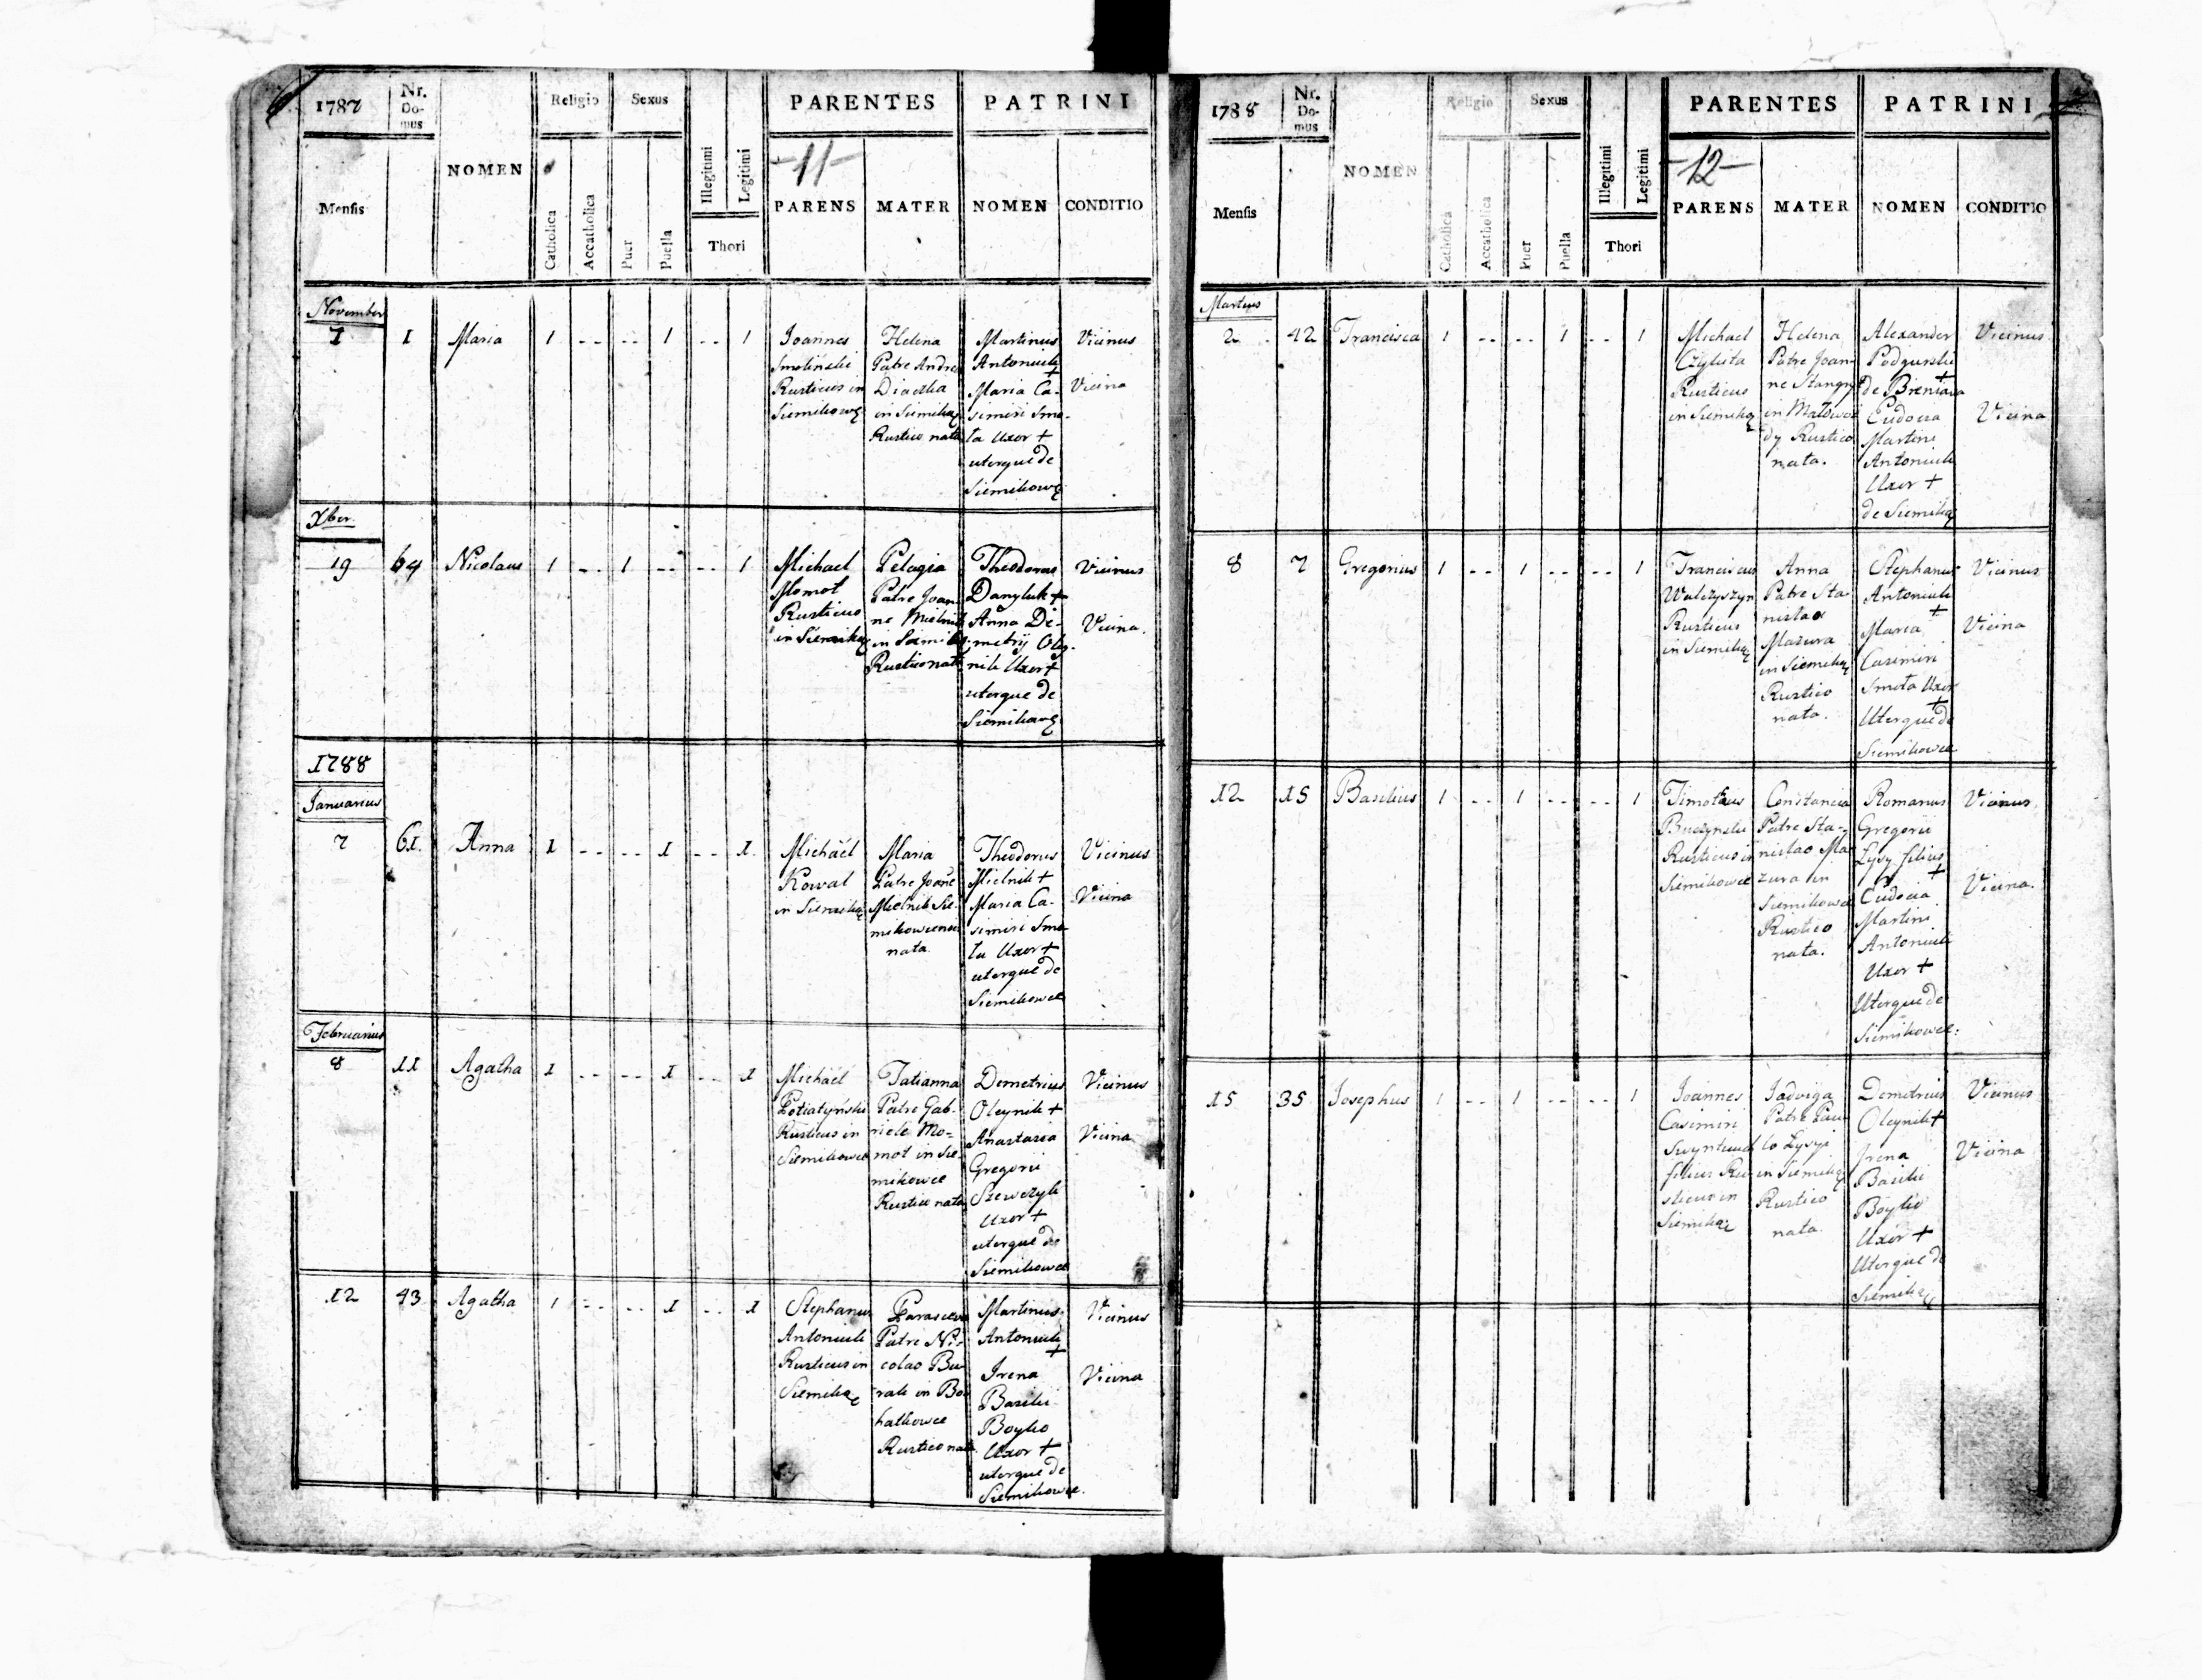 1787
Nr. Domus
NOMEN
Religio
Sexus
Illegitimi
Legitimi
PARENTES
PATRINI
-11-
Mensis
Catholica
Accatholica
Puer
Puella
Thori
PARENS
MATER
NOMEN
CONDITIO
November
1 1 Maria 1 -- -- 1 -- 1
Joannes
Smoliński
Rusticus in
Siemikowce
Helena
Patre Andrea
Diaczka
in Siemikoę
Rustico nata
Martinus
Antoniuk
+
Maria Ca-
simiri Smo-
ta Uxor +
uterque de
Siemikowę
Vicinus
Vicina
Xber.
19 64 Nicolaus 1 -- 1 -- -- 1
Michael
Momot
Rusticus
in Siemikoę
Pelagia
Patre Joan-
ne Mielnik
in Siemikoę
Rustico nata
Theodorus
Danyluk +
Anna De-
metrij Oley-
nik Uxor +
uterque de
Siemikowę
Vicinus
Vicina.
1788
Januarius
7 61. Anna 1 -- -- 1 -- 1.
Michaël
Kowal
in Siemikoę
Maria
Patre Joañe
Mielnik Sie-
mikowcensi
nata
Theodorus
Mielnik +
Maria Ca-
simiri Smo-
ta Uxor +
uterque de
Siemikowce
Vicinus
Vicina
Februarius
8 11 Agatha 1 -- -- 1 -- 1
Michaël
Potiatyński
Rusticus in
Siemikowce
Tatianna
Patre Gab-
riele Mo-
mot in Sie-
mikowce
Rustico nata
Demetrius
Oleynik +
Anastasia
Gregorii
Szewczyk
Uxor +
uterque de
Siemikowce
Vicinus
Vicina
12 43 Agatha 1 -- -- 1 -- 1
Stephanus
Antoniuk
Rusticus in
Siemikoę
Parasceva
Patre Ni-
colao Bu-
rak in Bo-
hatkowce
Rustico nata.
Martinus
Antoniuk
+
Irena
Basilii
Boyko
Uxor +
uterque de
Siemikowce.
Vicinus
Vicina
1788
Nr. Domus
NOMEN
Religio
Sexus
Illegitimi
Legitimi
PARENTES
PATRINI
-12-
Mensis
Catholica
Accatholica
Puer
Puella
Thori
PARENS
MATER
NOMEN
CONDITIO
Martius
2 42 Francisca 1 -- -- 1 -- 1
Michael
Rusticus
in Siemikoę
Helena
Patre Joan-
ne
in Malowo
dy Rustico
nata.
Alexander
Podgurski
+
de Breniawa
Eudocia
Martini
Antoniuk
Uxor +
de Siemikoę
Vicinus
Vicina
8 7 Gregorius 1 -- 1 -- -- 1
Franciscus
Walczyszyn
Rusticus
in Siemikoę
Anna
Patre Sta-
nislao
Mazura
in Siemikoę
Rustico
nata.
Stephanus
Antoniuk
+
Maria
Casimiri
Smota Uxor
+
Uterque de
Siemikowce
Vicinus
Vicina
12 15 Basilius 1 -- 1 -- -- 1
Timotheus
Buczynski
Rusticus in
Siemikowce
Constancia
Patre Sta-
nislao Ma-
zura in
Siemikowce
Rustico
nata.
Romanus
Gregorii
Łysy filius
+
Eudocia
Martini
Antoniuk
Uxor +
Uterque de
Siemikowce:
Vicinus,
Vicina.
15 35 Josephus 1 -- 1 -- -- 1
Joannes
Casimiri
filius Ru-
sticus in
Siemikoę
Jadviga
Patre Pau-
lo Łysyi
in Siemikoę
Rustico
nata.
Demetrius
Oleynik +
Irena
Basilii
Boyko
Uxor +
Uterque de
Siemikoę
Vicinus
Vicina